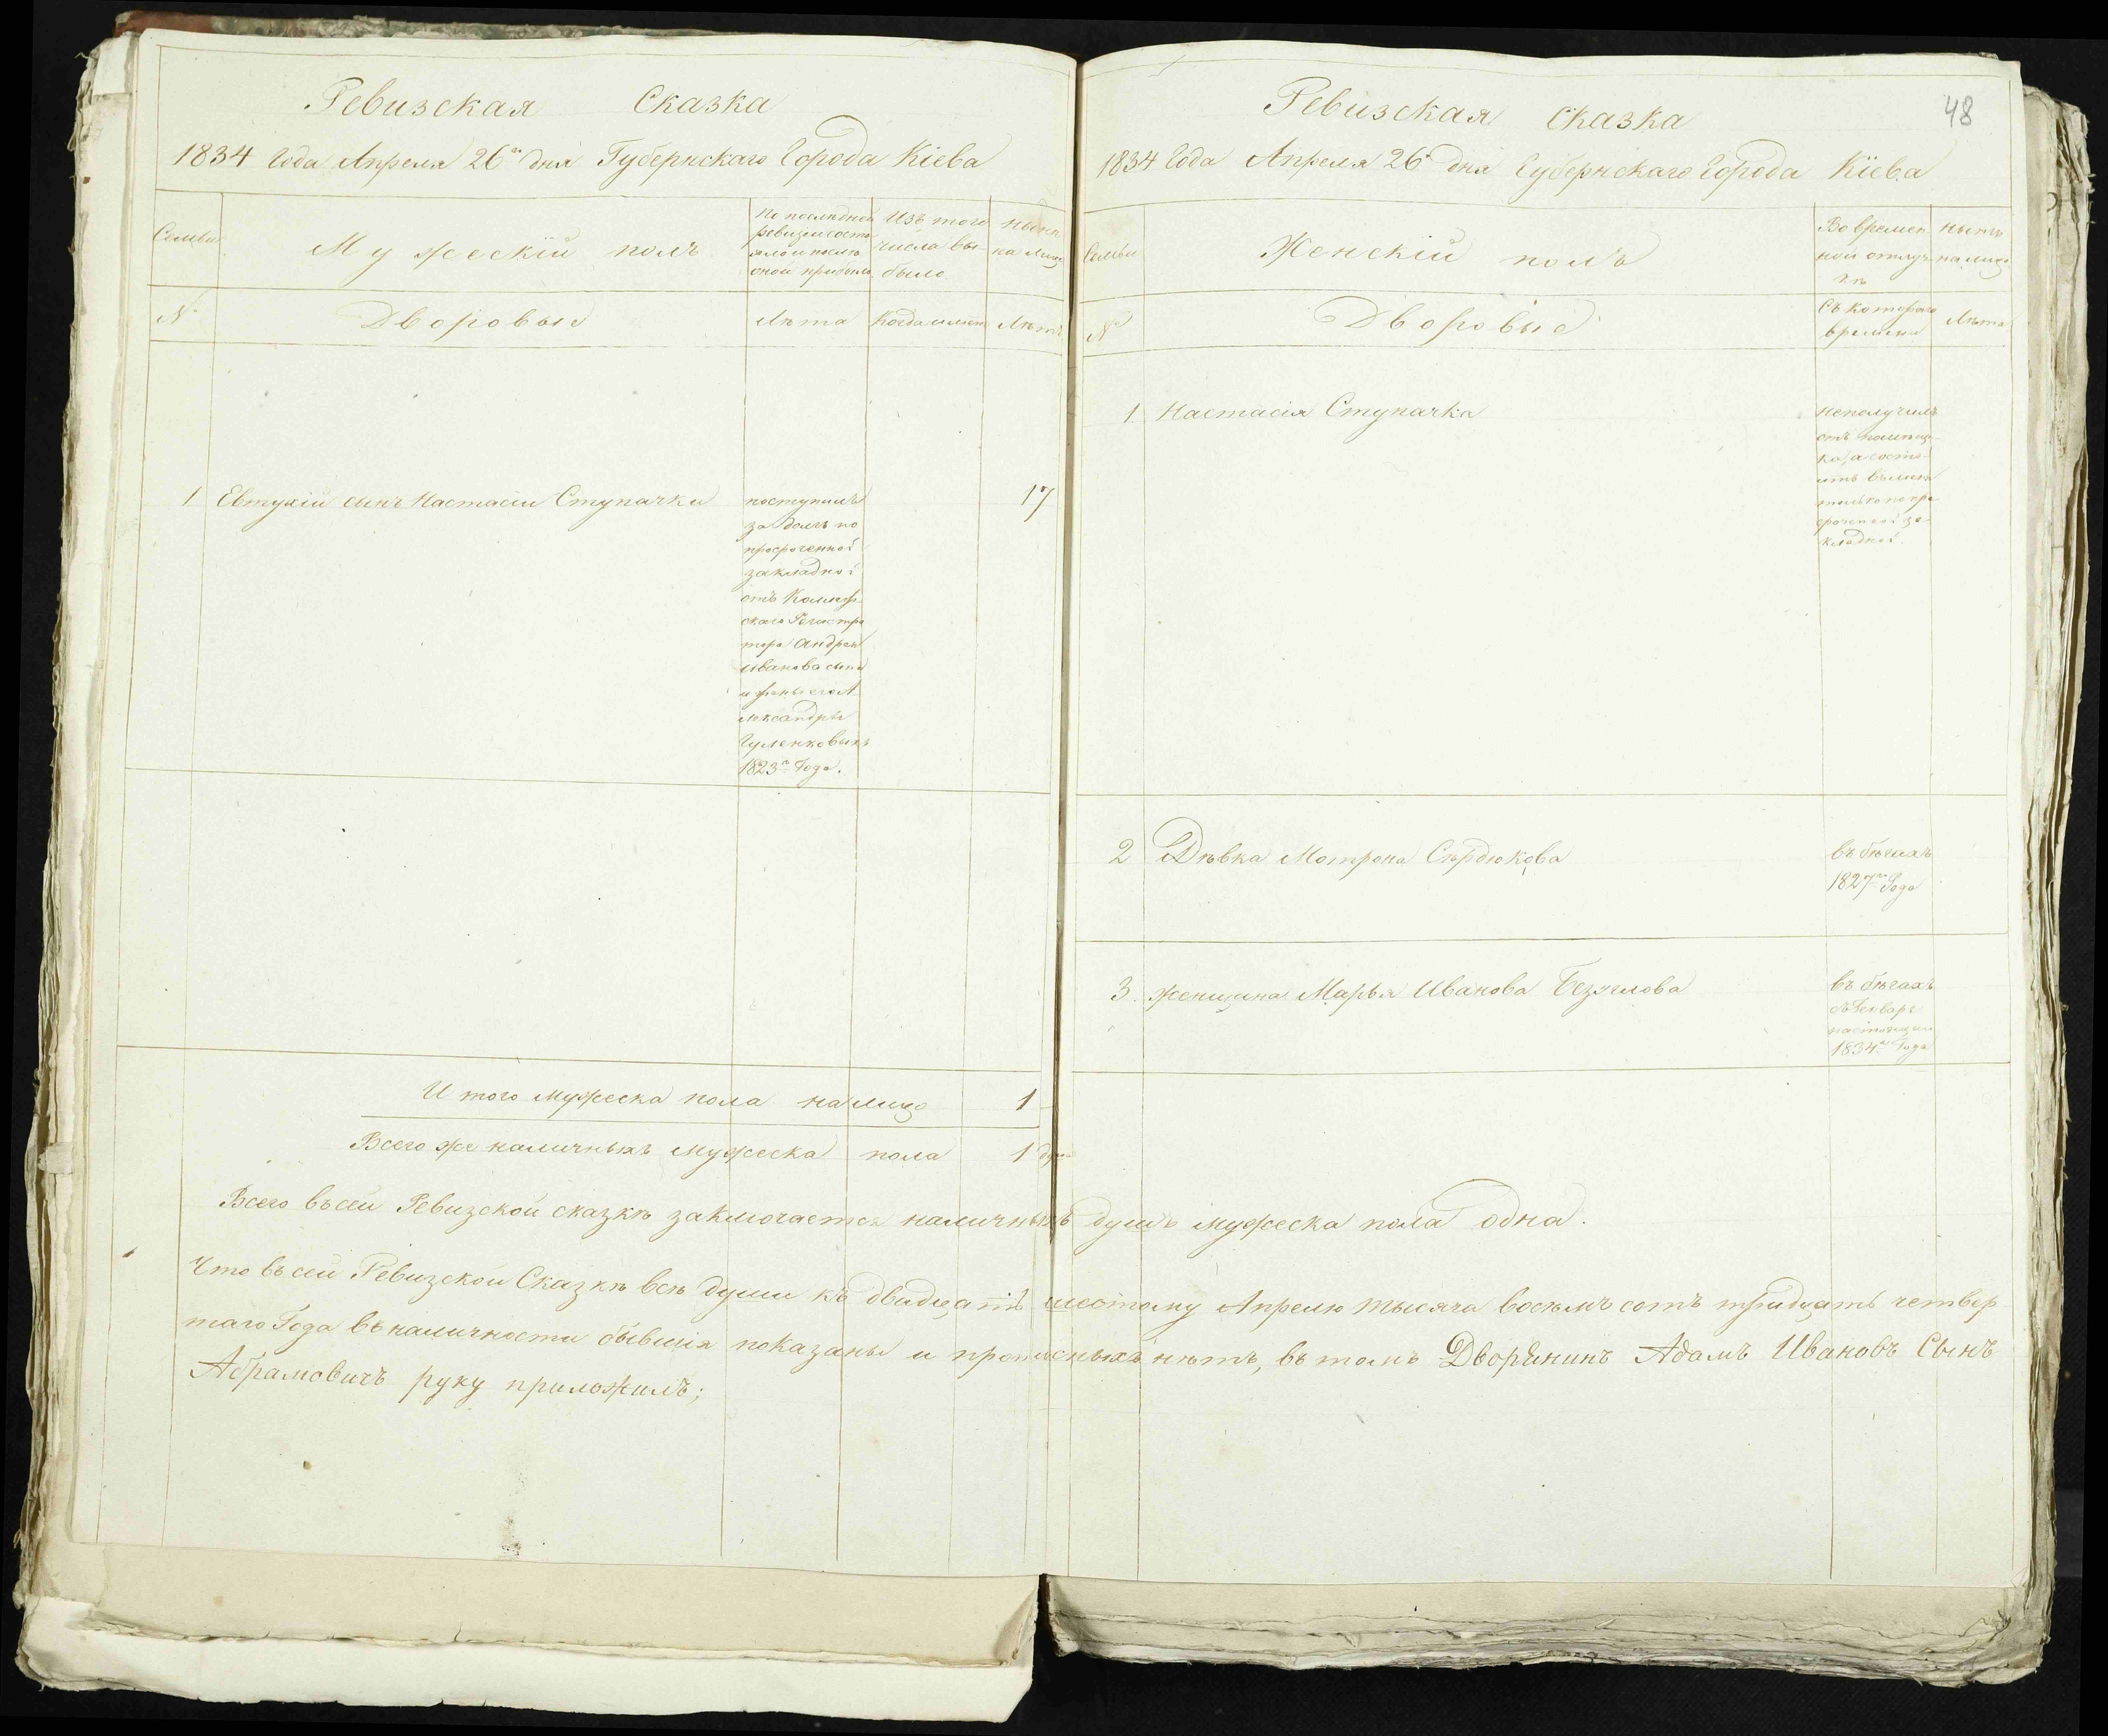 Ревизская Сказка
1834 Года Апреля 26го дня Губернскаго Города Кіева
Семьи
Мужескій полъ
По последней
ревизіи состо-
яло и после
оной прибыло
Изъ того
числа вы-
было
Ныне
на лицо
№
Дворовые
Лѣта
Когда имянно
Лѣта
1 Евтухій сынъ Настасіи Ступачки
поступилъ
за долгъ по
просроченной
закладной
отъ Коллеж-
скаго Регистра
тора Андрея
Иванова сына
и жены его А
лександры
Гуленковыхъ
1823го Года.
17
И того мужеска пола на лицо 1
Всего же наличныхъ мужеска пола 1 душ
48
Ревизская Сказка
1834 Года Апреля 26 дня Губернскаго Города Кіева
Семьи
Женскій полъ
Во времен
ной отлуч
кѣ
Нынѣ
на лицо
№
Дворовые
Съ котораго
времени
Лѣта
1. Настасія Ступачка
неполучилъ
отъ помѣщи-
ка, а состо-
итъ
только по про
сроченной за-
кладной.
2 Дѣвка Мотрона Сѣрдюкова
въ бѣгахъ
1827го Года
3. Женщина Марья Иванова Безуглова
въ бѣгахъ
съ Генваря
настоящаго
1834го Года
Всего въ сей Ревизской сказкѣ заключается наличныхъ душъ мужеска пола одна.
Что въ сей Ревизской Сказкѣ всѣ души къ двадцать шестому Апрелю тысяча восемь сотъ тридцать четвер
таго Года въ наличности бывшія показаны и прописныхъ нѣтъ, въ томъ Дворянинъ Адамъ Ивановъ Сынъ
Абрамовичъ руку приложилъ;